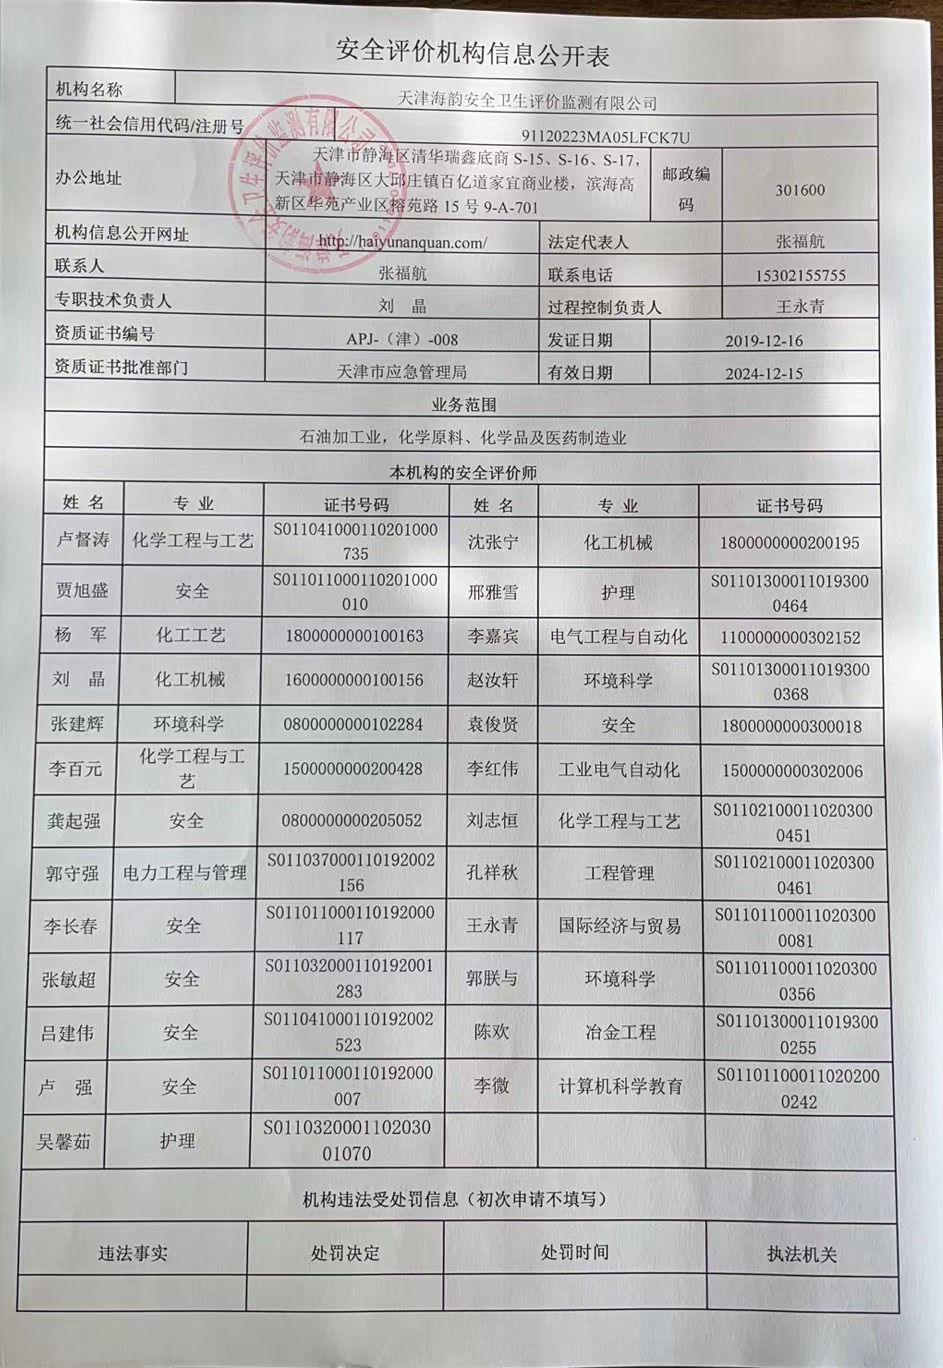 安全评价机构信息公开表
机构名称 天津海韵安全卫生评价监测有限公司
统一社会信用代码/注册号 91120223MA05LFCK7U
办公地址 天津市静海区清华瑞鑫底商 S-15、S-16、S-17，
天津市静海区大邱庄镇百亿道家宜商业楼，滨海高
新区华苑产业区榕苑路 15 号 9-A-701
邮政编
码
301600
机构信息公开网址 http://haiyunanquan.com/ 法定代表人 张福航
联系人 张福航 联系电话 15302155755
专职技术负责人 刘 晶 过程控制负责人 王永青
资质证书编号 APJ-（津）-008 发证日期 2019-12-16
资质证书批准部门 天津市应急管理局 有效日期 2024-12-15
业务范围
石油加工业，化学原料、化学品及医药制造业
本机构的安全评价师
姓 名 专 业 证书号码 姓 名 专 业 证书号码
卢督涛 化学工程与工艺 S011041000110201000
735
沈张宁 化工机械 1800000000200195
贾旭盛 安全 S011011000110201000
010
邢雅雪 护理 S01101300011019300
0464
杨 军 化工工艺 1800000000100163 李嘉宾 电气工程与自动化 1100000000302152
刘 晶 化工机械 1600000000100156 赵汝轩 环境科学 S01101300011019300
0368
张建辉 环境科学 0800000000102284 袁俊贤 安全 1800000000300018
李百元 化学工程与工
艺
1500000000200428 李红伟 工业电气自动化 1500000000302006
龚起强 安全 0800000000205052 刘志恒 化学工程与工艺 S01102100011020300
0451
郭守强 电力工程与管理 S011037000110192002
156
孔祥秋 工程管理 S01102100011020300
0461
李长春 安全 S011011000110192000
117
王永青 国际经济与贸易 S01101100011020300
0081
张敏超 安全 S011032000110192001
283
郭朕与 环境科学 S01101100011020300
0356
吕建伟 安全 S011041000110192002
523
陈欢 冶金工程 S01101300011019300
0255
卢 强 安全 S011011000110192000
007
李微 计算机科学教育 S01101100011020200
0242
吴馨茹 护理 S0110320001102030
01070
机构违法受处罚信息（初次申请不填写）
违法事实 处罚决定 处罚时间 执法机关